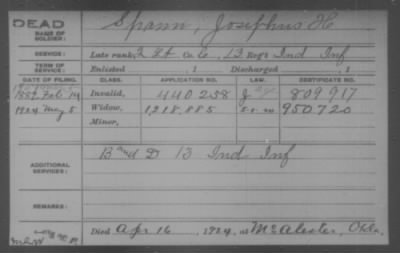 DEAD
NAME OF SOLDIER: Spann, Josephus H
SERVICE: Late rank, 2 Lt Co. C, 13 Reg't Ind Inf
TERM OF SERVICE: Enlisted , 1 Discharged , 1
DATE OF FILING. CLASS. APPLICATION NO. CERTIFICATE NO.
Feb 14 Invalid, 440.258 809917
1924 May 5 Widow, 1218.885 950720
Minor,
ADDITIONAL SERVICES: B and D 13 Ind Inf
REMARKS:
Died Apr 16, 1924, at McAlester, Okla.